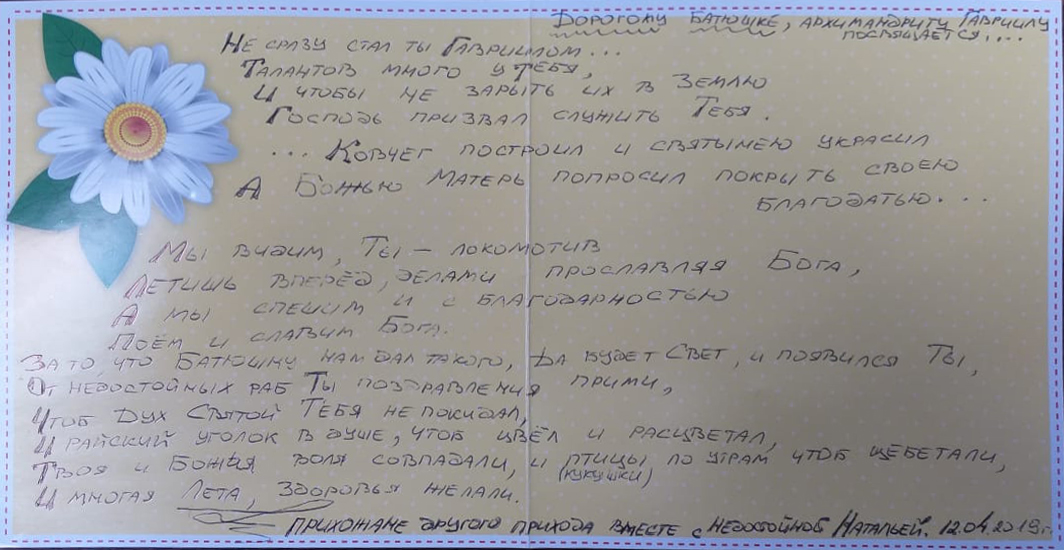 Дорогому Батюшке, архимандриту Гавриилу
посвящается....
Не сразу стал ты Гавриилом...
Талантов много у тебя,
И чтобы не зарыть их в Землю
Господь призвал служить Тебя.
... Ковчег построил и святынею украсил
А Божью Матерь попросил покрыть своею
благодатью...
Мы видим, Ты – локомотив
Летишь вперёд, делами прославляя Бога,
А мы спешим и с благодарностью
Поём и славим Бога.
За то, что Батюшку нам дал такого, Да будет Свет, и появился Ты,
От недостойных раб Ты поздравления прими,
Чтоб Дух Святой Тебя не покидал,
И райский уголок в душе, чтоб цвёл и расцветал,
Твоя и Божия воля совпадали, и птицы по утрам чтоб щебетали,
(кукушки)
И многая Лета, здоровья желали.
Прихожане другого прихода вместе с недостойной Натальей. 12.04.2019г.